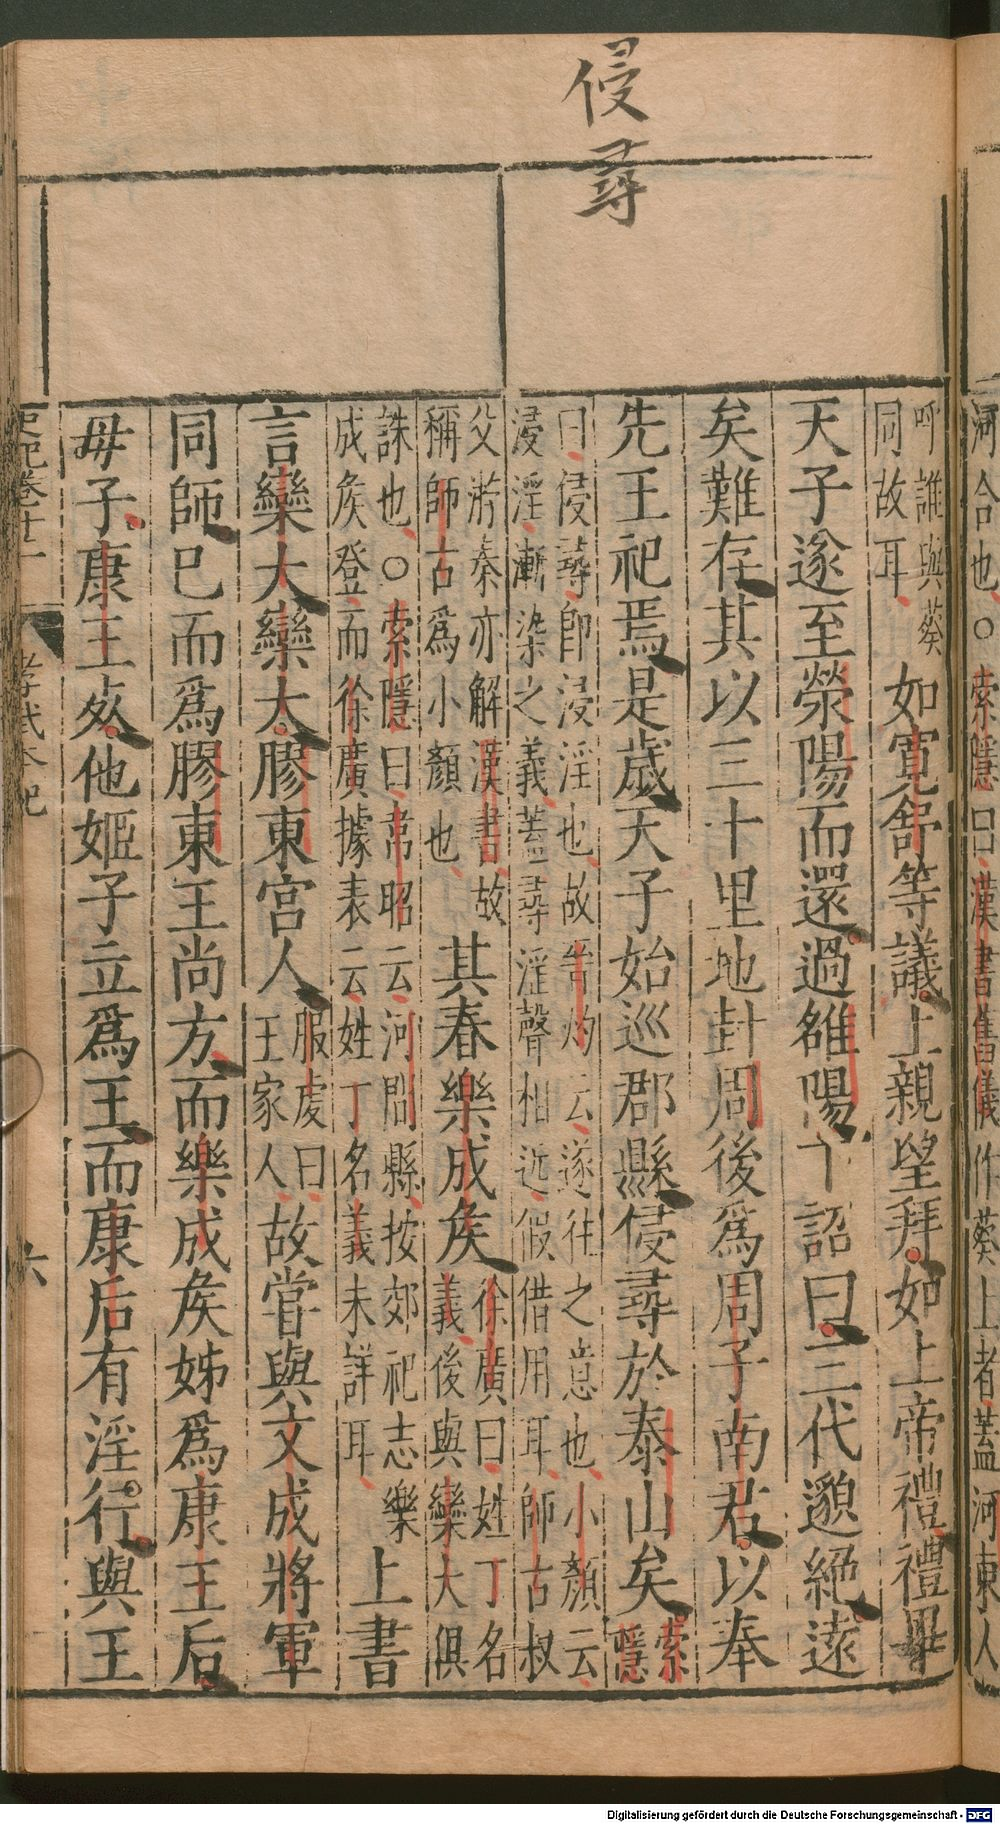 侵尋
河合也○索隱曰漢書舊儀作葵上者蓋河東人
呼誰與葵
同故耳
如寬舒等議上親望拜如上帝禮禮畢
天子遂至滎陽而還過雒陽下詔曰三代邈絕遠
矣難存其以三十里地封周後爲周子南君以奉
先王祀焉是歲天子始巡郡縣侵尋於泰山矣
索
隱
曰侵尋即浸淫也故晉灼云遂往之意也小顏云
浸淫漸染之義蓋尋淫聲相近假借用耳師古叔
父游秦亦解漢書故
稱師古爲小顏也
其春樂成矦
徐廣曰姓丁名
義後與欒大俱
誅也○索隱曰韋昭云河間縣按郊祀志樂
成矦登而徐廣據表云姓丁名義未詳耳
上書
言欒大欒大膠東宮人
服虔曰
王家人
故嘗與文成將軍
同師已而爲膠東王尚方而樂成矦姊爲康王后
毋子康王死他姬子立爲王而康后有淫行與王
史記卷十二
孝武本紀
六
Digitalisierung gefördert durch die Deutsche Forschungsgemeinschaft - DFG